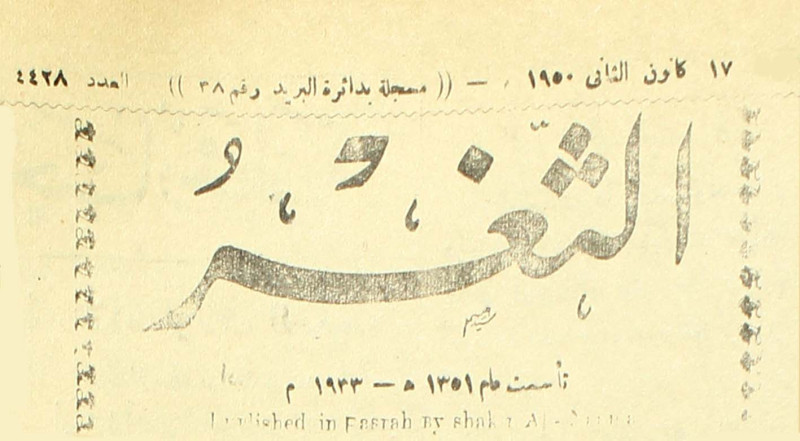 ١٧ كانون الثاني ١٩٥٠ — (( مسجلة بدائرة البريد رقم ٣٨ )) العدد ٤٤٢٨
الثغر
تأسست عام ١٣٥١ ه — ١٩٣٣ م
Published in Basrah By Shakir Al-